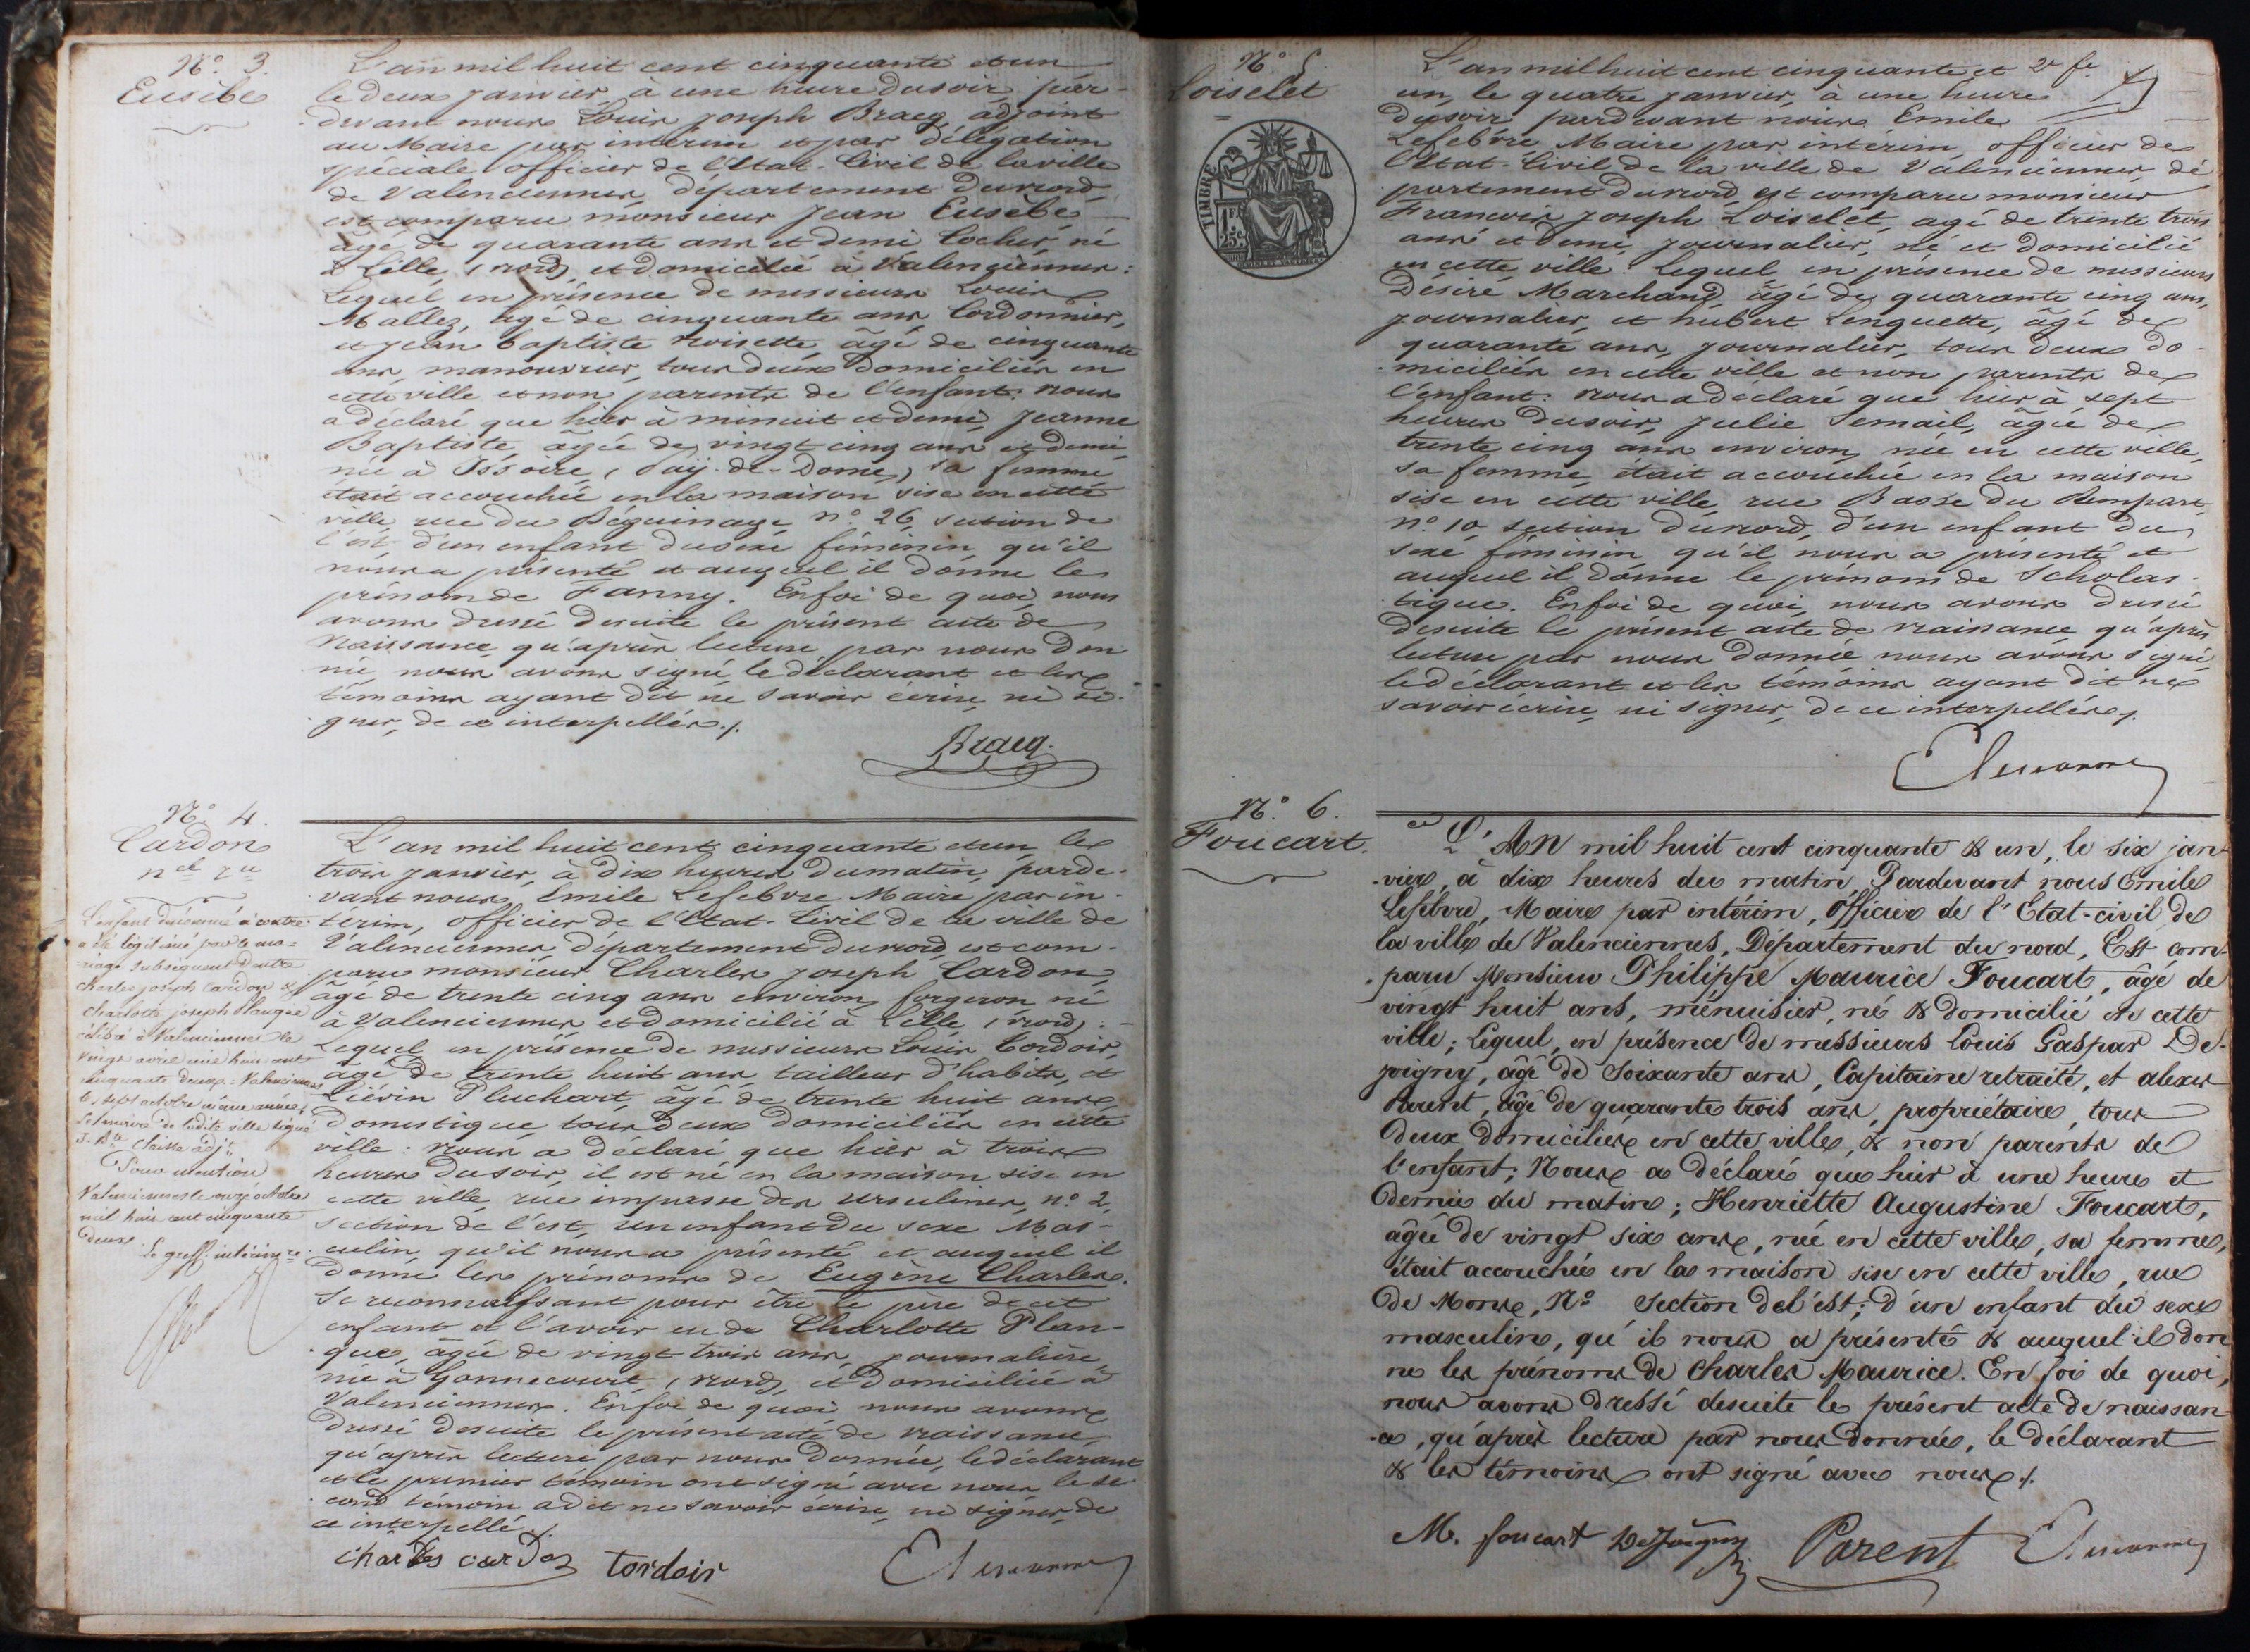 N° 3.
Eusèbe
L'an mil huit cent cinquante et un
le deux janvier, à une heure du soir, par-
devant nous Louis Joseph Bracq, adjoint
au Maire par intérim et par délégation
spéciale officier de l'Etat-Civil de la ville
de Valenciennes, département du nord,
est comparu monsieur Jean Eusèbe
âgé de quarante ans et demi Cocher, né
à Lille, (nord) et domicilié à Valenciennes:
Lequel en présence de messieurs Louis
Mallez, âgé de cinquante ans Cordonnier,
et Jean Baptiste Noisette, âgé de cinquante
ans, manouvrier, tous deux domiciliés en
cette ville et non parents de l'enfant: nous
a déclaré que hier à minuit et demi, Jeanne
Baptiste, âgée de vingt cinq ans et demi,
née à Issoire, (Puy-de-Dome,) sa femme
était accouchée en la maison sise en cette
ville, rue du Béguinage n° 26, section de
l'est d'un enfant du sexe féminin, qu'il
nous a présenté et auquel il donne le
prénom de Fanny. En foi de quoi, nous
avons dressé desuite le présent acte de
Naissance, qu'après lecture par nous don
née, nous avons signé, le déclarant et les
témoins ayant dit ne savoir écrire, ni si-
gner, de ce interpellés./.
Bracq.
N° 4.
Cardon
nel
L'enfant dénommé ci-contre
a été légitimé par le ma=
riage subséquent d'entre
Charles joseph Cardon &
Charlotte joseph Planque
célébré à Valenciennes le
vingt avril mil huit cent
cinquante deux = Valenciennes
le sept octobre même année;
Le maire de ladite ville signé
J. Bte adjt
Pour mention
Valenciennes le onze octobre
mil huit cent cinquante
deux
Le greff. intérimre
L'an mil huit cent cinquante et un, le
trois janvier, à dix heures du matin, parde-
vant nous Emile Lefebvre Maire par in-
térim, officier de l'Etat-Civil de la ville de
Valenciennes, département du nord, est com-
paru monsieur Charles Joseph Cardon,
âgé de trente cinq ans environ, forgeron né
à Valenciennes et domicilié à Lille, (nord).-
Lequel en présence de messieurs Louis Tordoir,
âgé de trente huit ans, tailleur d'habits, et
Liévin Pluchart, âgé de trente huit ans
Domestique tous deux domiciliés en cette
ville: nous a déclaré que hier à trois
heures du soir, il est né en la maison sise en
cette ville, rue impasse des Ursulines, n° 2,
section de l'est, un enfant du sexe Mas-
culin, qu'il nous a présenté et auquel il
donne les prénoms de Eugène Charles.
Se reconnaissant pour être le père de cet
enfant et l'avoir eu de Charlotte Plan-
que, âgée de vingt trois ans, journalière,
née à Gonnecourt, (nord) et domiciliée à
Valenciennes. En foi de quoi nous avons
dressé desuite le présent acte de naissance,
qu'après lecture par nous donnée, le déclarant
et le premier témoin ont signé avec nous le se-
cond témoin a dit ne savoir écrire, ni signer, de
ce interpellé./.
charles cardon tordoir
N° 5.
Loiselet
TIMBRE
1F.
25c.
2e fe
L'an mil huit cent cinquante et
un, le quatre janvier, à une heure
du soir, pardevant nous Emile
Lefebvre, Maire par intérim, officier de
l'Etat-Civil de la ville de Valenciennes dé
partement du nord, est comparu monsieur
Francois Joseph Loiselet, agé de trente trois
ans et demi, journalier, né et domicilié
en cette ville: Lequel en présence de messieurs
Désiré Marchand, âgé de quarante cinq ans,
journalier, et hubert Lenguette, âgé de
quarante ans, journalier, tous deux do-
miciliés en cette ville et non parents de
l'enfant: Nous a déclaré que hier à sept
heures du soir, Julie Semail, âgée de
trente cinq ans environ, née en cette ville,
sa femme, était accouchée en la maison
sise en cette ville, rue Basse du Rempart,
n° 10, section du nord, d'un enfant du
sexe féminin, qu'il nous a présenté et
auquel il donne le prénom de Scholas-
tique. En foi de quoi, nous avons dressé
desuite le présent acte de naissance, qu'après
lecture par nous donnée nous avons signé,
le déclarant et les témoins ayant dit ne
savoir écrire, ni signer, de ce interpellés./.
N° 6.
Foucart.
L'AN mil huit cent cinquante & un, le six jan-
-vier, à dix heures du matin, Pardevant nous Emile
Lefebvre, Maire par intérim, Officier de l'Etat-civil de
la ville de Valenciennes, Département du nord, Est com-
paru Monsieur Philippe Maurice Foucart, âgé de
vingt huit ans, menuisier, né & domicilié en cette
ville; Lequel, en présence de messieurs Louis Gaspar De-
joigny, âgé de soixante ans, Capitaine retraité, et alexis
Parent, âgé de quarante trois ans, propriétaire, tous
deux domiciliés en cette ville, & non parents de
l'enfant; Nous a déclaré que hier à une heure et
demie du matin; Henriette Augustine Foucart,
âgée de vingt six ans, née en cette ville, sa femme,
était accouchée en la maison sise en cette ville, rue
de Mons, N° Section de l'est; d'un enfant du sexe
masculin, qu'il nous a présenté & auquel il don
ne les prénoms de Charles Maurice. En foi de quoi,
nous avons dressé desuite le présent acte de naissan-
-ce, qu'après lecture par nous donnée, le déclarant
& les témoins ont signé avec nous./.
M. foucart DeJoigny Parent